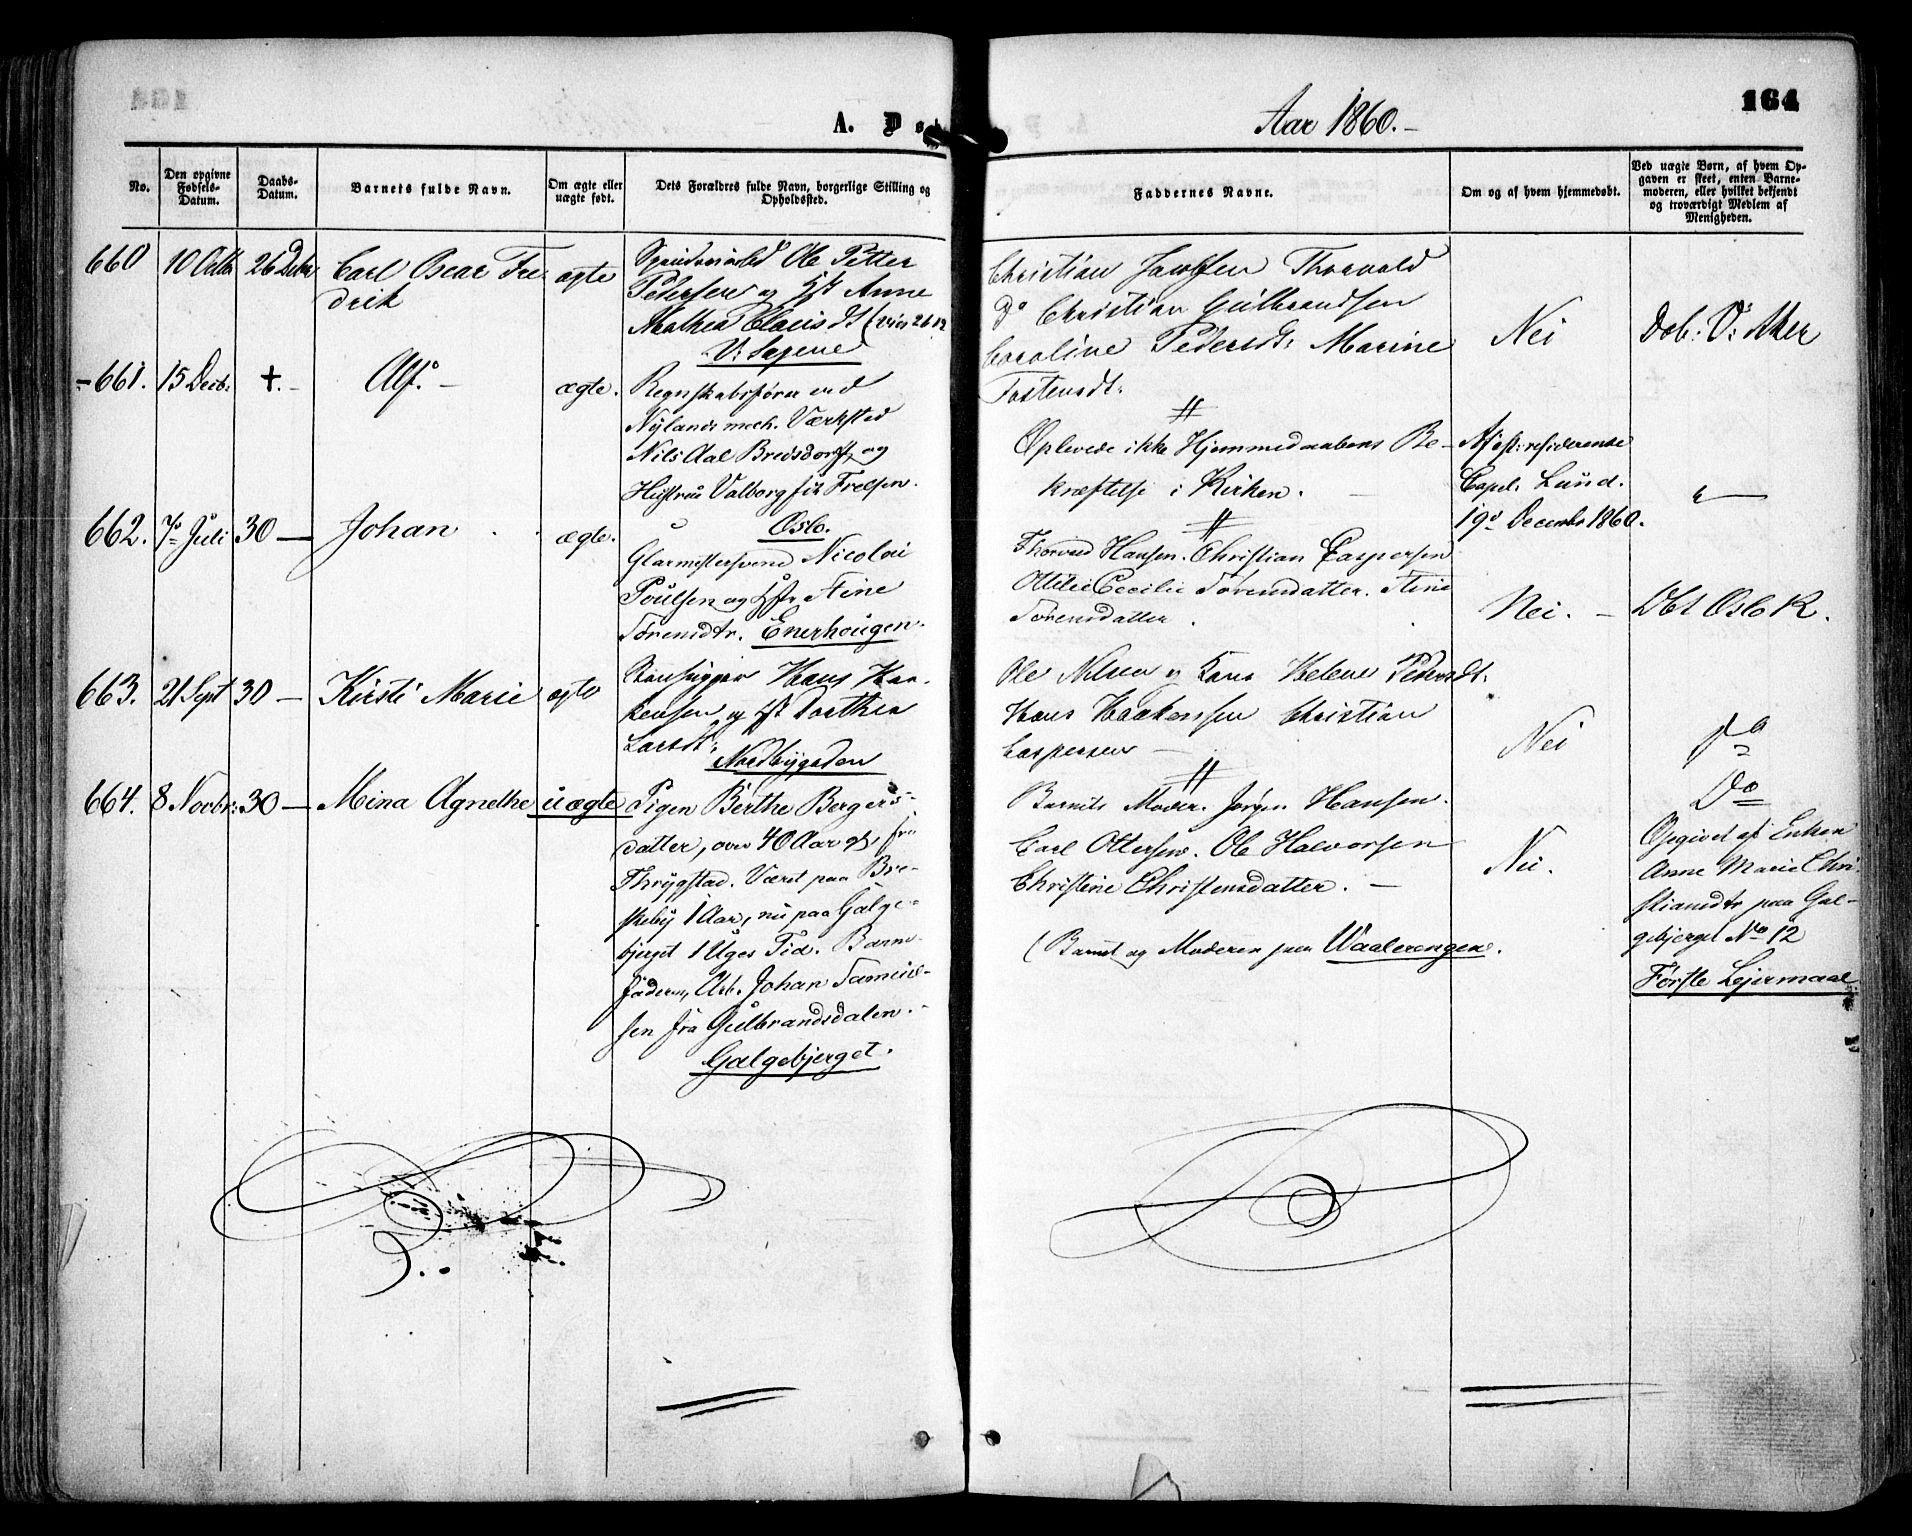 A. D
Aar 1860.-
164
No.
Den opgivne Fødsels-Datum.
Daabs-Datum.
Barnets fulde Navn.
Om ægte eller uægte født.
Dets Forældres fulde Navn, borgerlige Stilling og Opholdssted.
Faddernes Navne.
Om og af hvem hjemmedøbt.
Ved uægte Børn, af hvem Opgaven er skeet, enten Barnemoderen, eller hvilket bekjendt og troværdigt Medlem af Menigheden.
660 10 Octbr 26 Decbr Carl Oscar Fre
drik
ægte
Ole Petter
Pedersen og Hst Anne
Mathea Clausdt
V: Sagene
Christian Jacobsen Thorvald
Do Christian Gulbrandsen
Caroline Pedersdt: Marine
Tostensdt:
Nei
Døb: V: Aker
661. 15 Decb: †.- Alf.- ægte.
Regnskabsfører ved
Nylands mech. Værksted
Nils Aal Bredsdorff, og
Hustrue Valborg Trelsen.
Oslo.
Oplevede ikke Hjemmedaabens Be-
kræftelse i Kirken.
Af residerende
Capel. Lund.
19d December 1860.
662. 7 Juli 30 — Johan ægte.
Glarmestersvend Nicolai
Poulsen og Hstr Stine
Sørensdtr. Enerhougen.
Thorvald Hansen. Christian Caspersen
Ottilie Cecilie Sørensdatter. Stine
Sørensdatter.
Nei. -
Dbt Oslo K.
663. 21 Sept 30 — Kirsti Marie ægte
Hans Haa-
kensen og Hst Dorthea
Larsdt:
Nordbygaden
Ole Nilsen og Hans Helene Pedersdt:
Hans Haakensen Christian
Caspersen —
Nei
Do
664. 8 Novbr: 30 — Mina Agnethe uægte
Pigen Berthe Bergers-
datter, over 40 Aar gl, fra
Thrygstad. Været paa Bre-
skeby 1 Aar, nu paa Galge-
bjerget 1 Uges Tid. Barne-
faderen, Arb. Johan Samuel-
sen fra Gulbrandsdalen.
Galgebjerget.
Barnets Moder. Jørgen Hansen.
Carl Ottersen. Ole Halvorsen
Christine Christensdatter. —
(Barnet og Moderen paa Waalerengen.
Nei.
Do
Opgivet af Enken
Anne Marie Chri-
stiansdtr paa Gal-
gebjerget No 12
Første Lejermaal